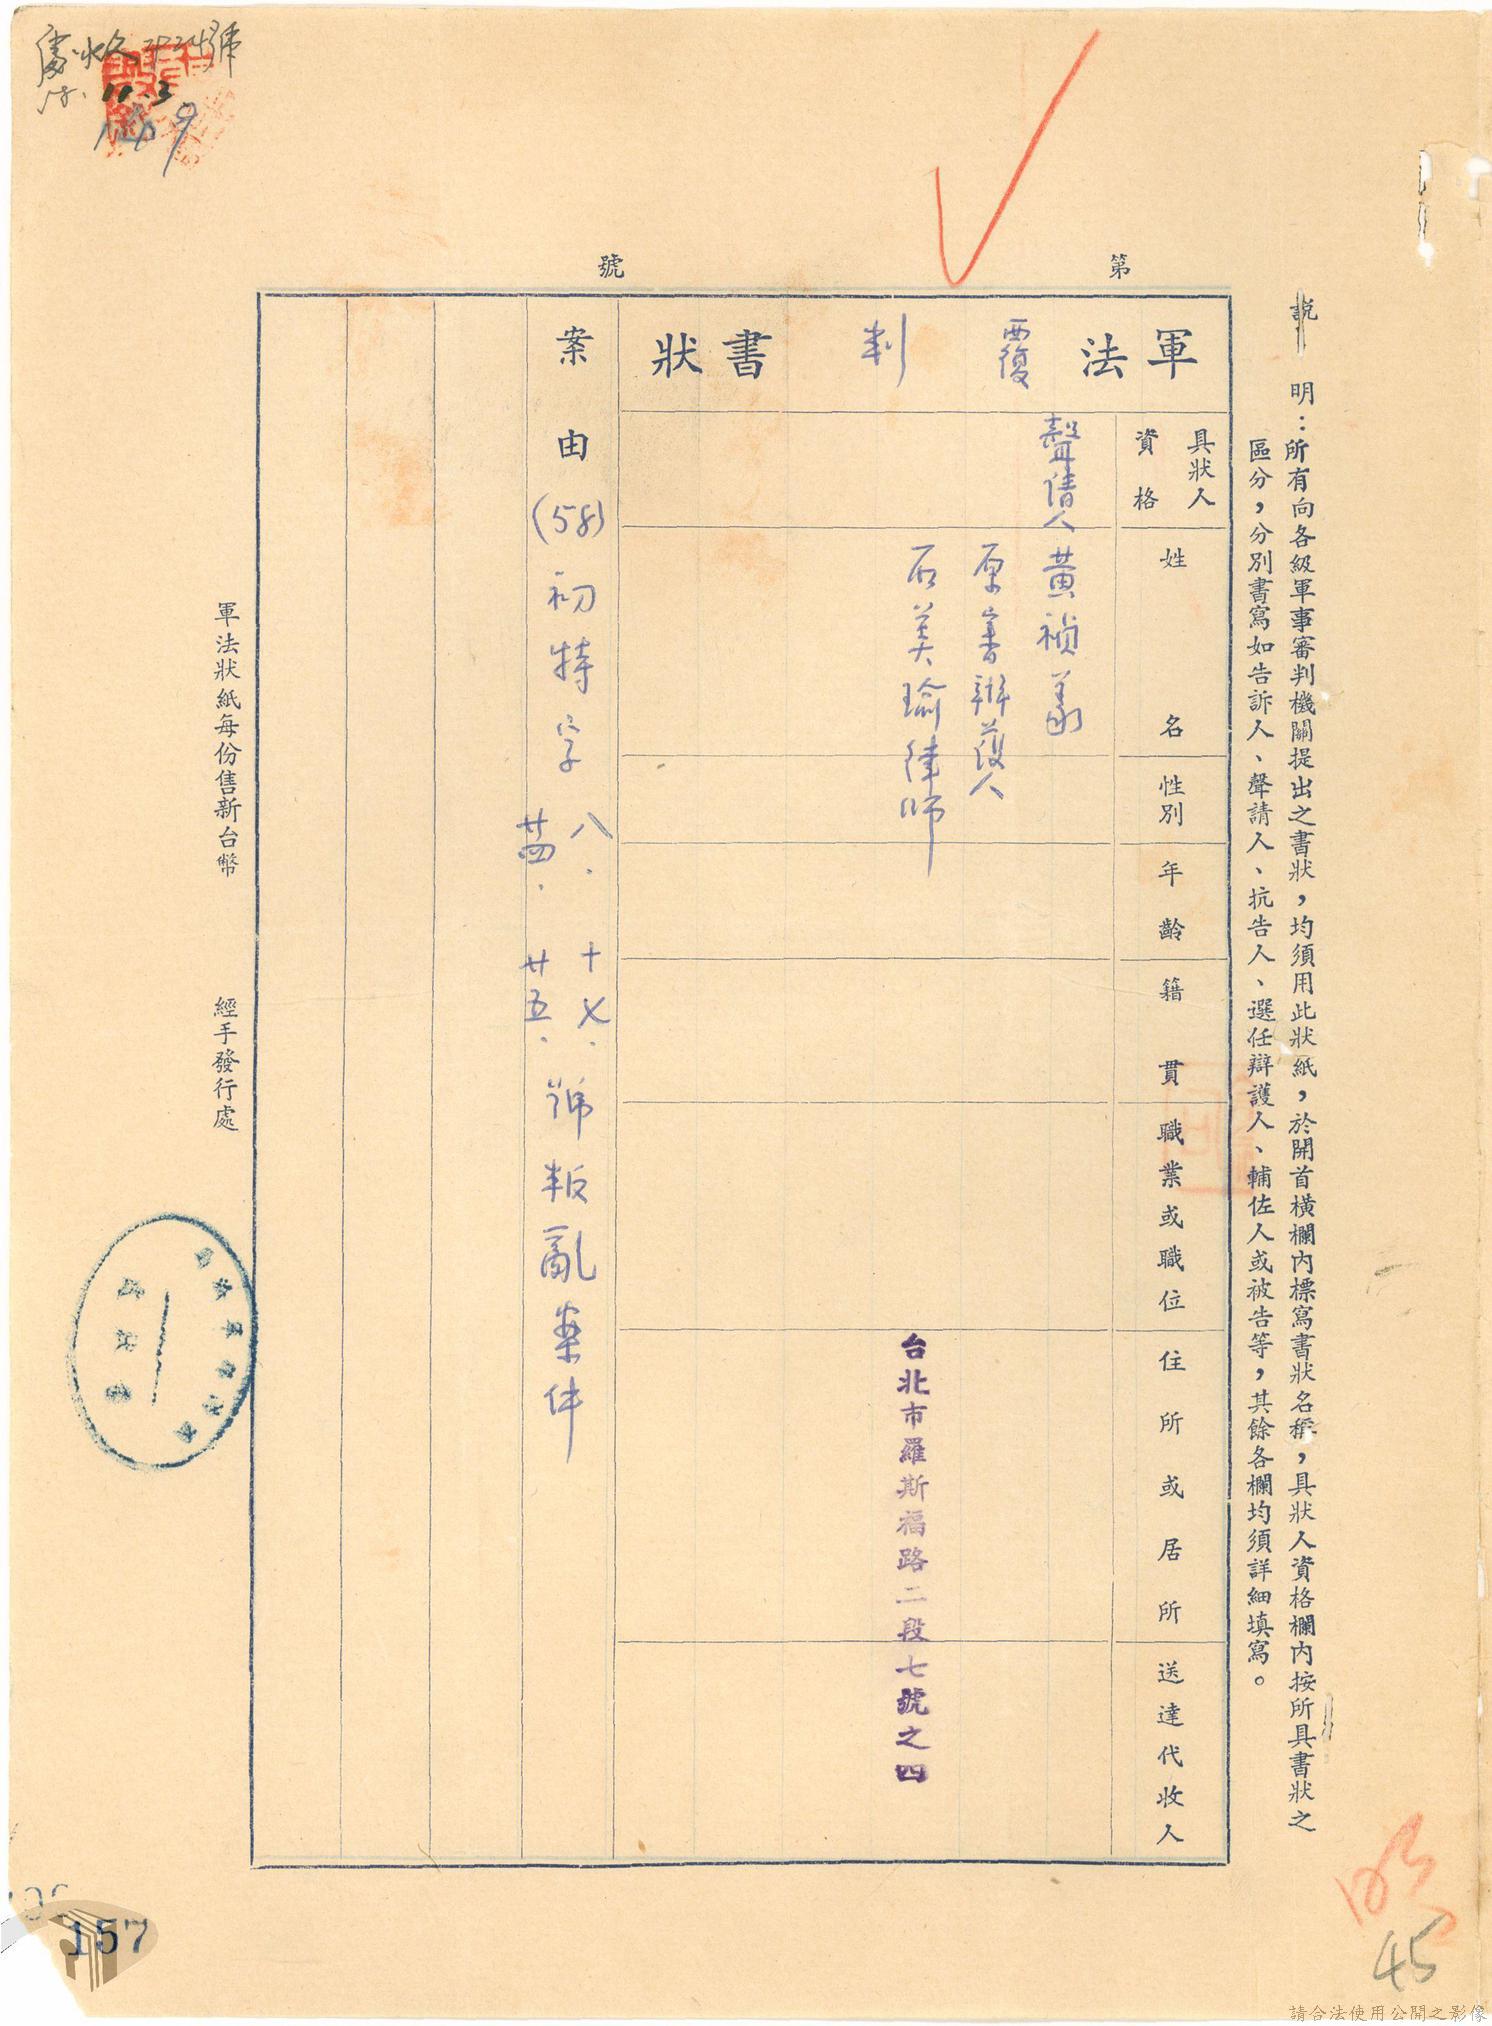 說　明：所有向各級軍事審判機關提出之書狀，均須用此狀紙，於開首橫欄內標寫書狀名稱，具狀人資格欄內按所具書狀之
區分，分別書寫如告訴人、聲請人、抗告人、選任辯護人、輔佐人或被告等，其餘各欄均須詳細填寫。
第　號
軍法覆判書狀
具狀人資格
姓名
性別
年齡
籍貫
職業或職位
住所或居所
送達代收人
聲請人　黃禎義
原審辯護人
石美瑜律師
台北市羅斯福路二段七號之四
案由　(58)初特字八．十七．廿四．廿五．號叛亂案件
軍法狀紙每份售新台幣　經手發行處
11.3
157
45
請合法使用公開之影像